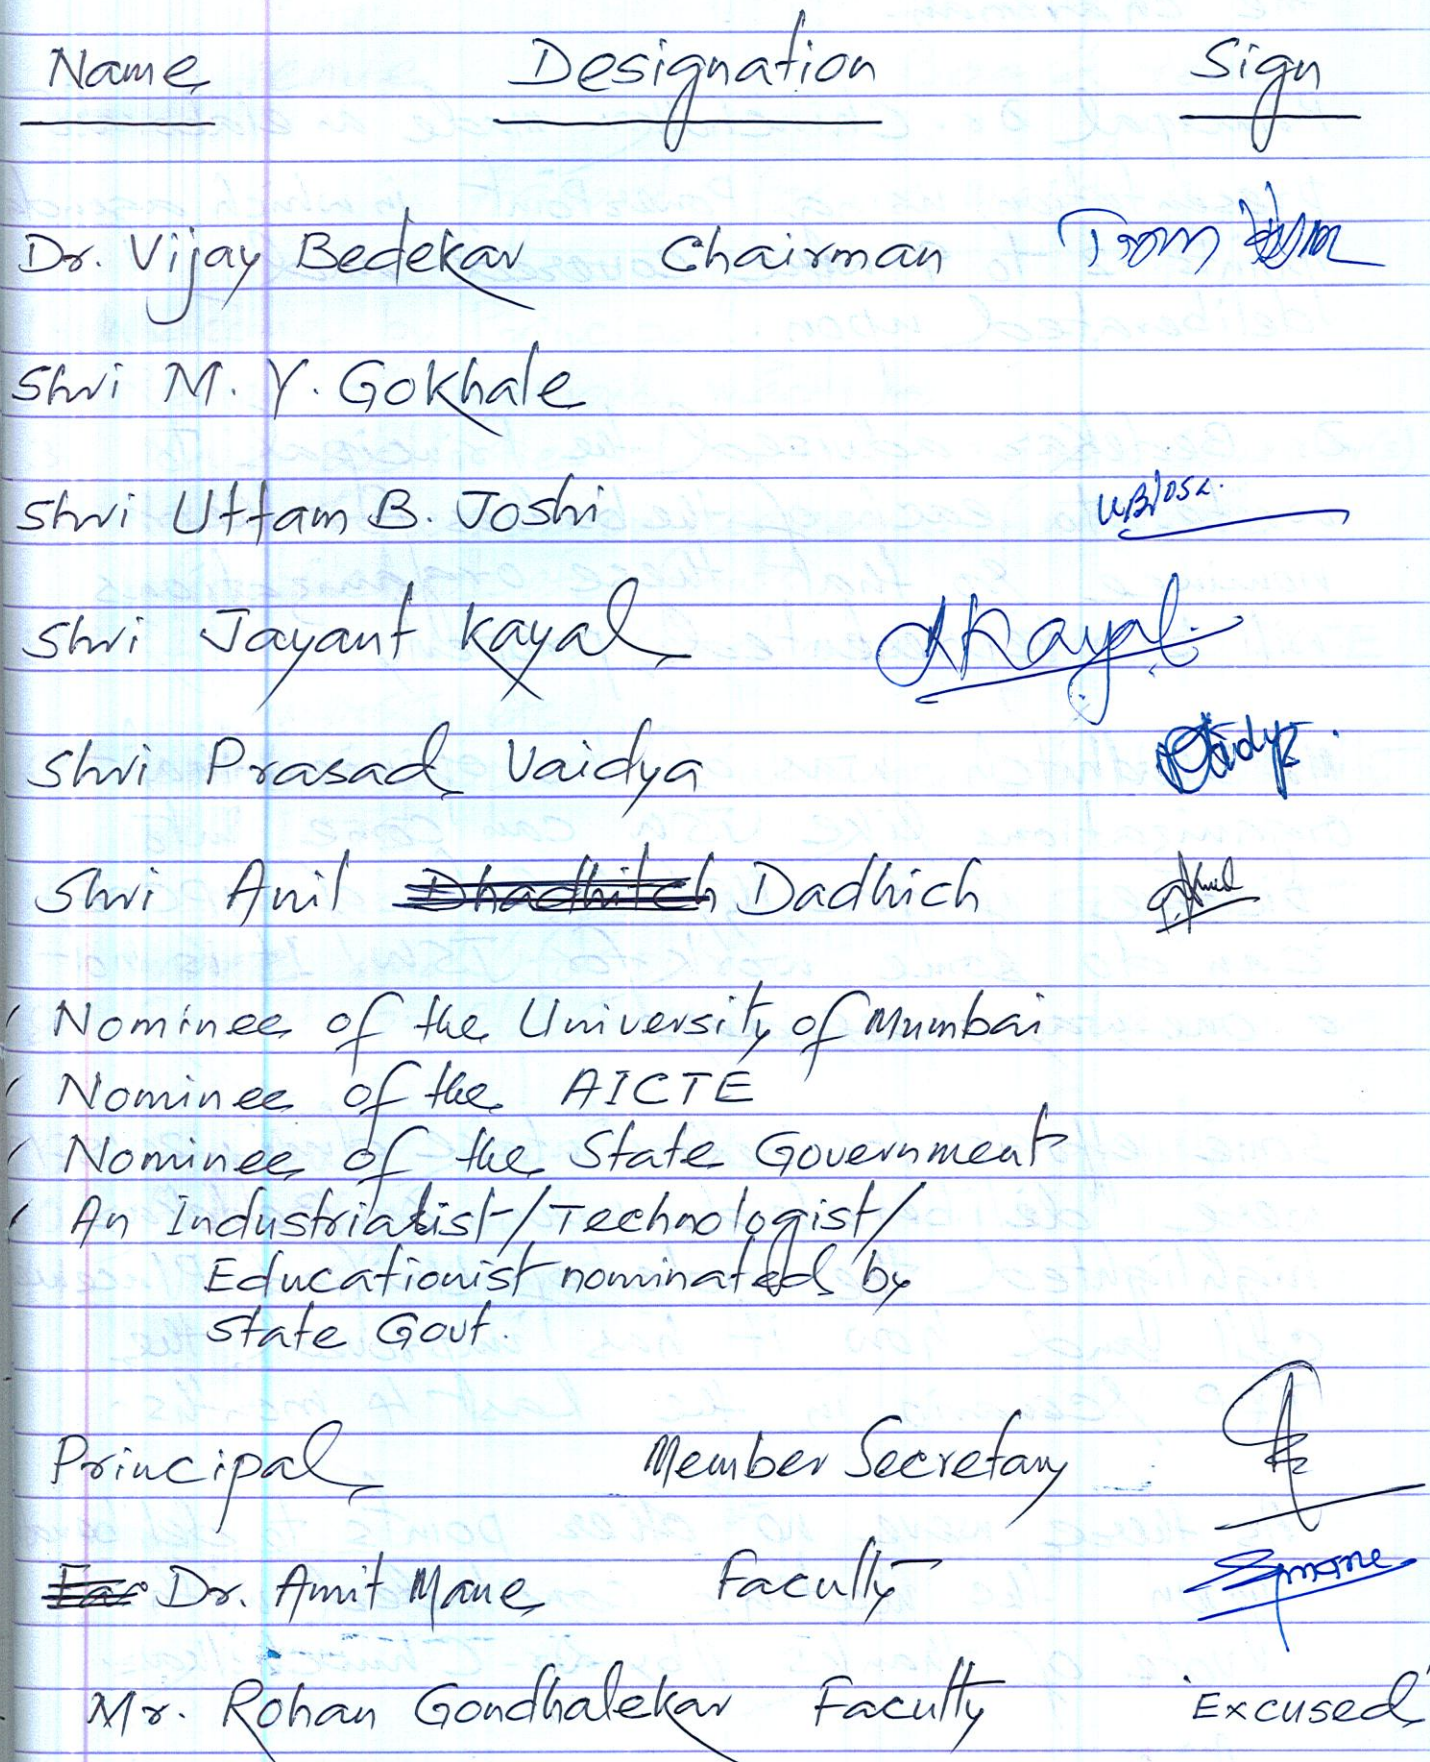 Name Designation Sign
Dr. Vijay Bedekar Chairman
Shri M. Y. Gokhale
Shri Uttam B. Joshi
Shri Jayant Kayal
Shri Prasad Vaidya
Shri Anil Dhadhitch Dadhich
Nominee of the University of Mumbai
Nominee of the AICTE
Nominee of the State Government
An Industrialist/Technologist/
Educationist nominated by
State Govt.
Principal Member Secretary
Dr. Amit Mane Faculty
Mr. Rohan Gondhalekar Faculty 'Excused'